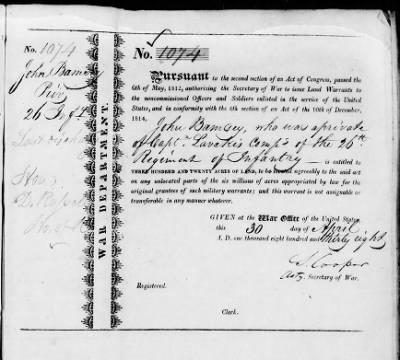 No. 1074
John Bamsey
26 Inf
WAR DEPARTMENT.
No. 1074
Pursuant to the second section of an Act of Congress, passed the
6th of May, 1812, authorizing the Secretary of War to issue Land Warrants to
the noncommissioned Officers and Soldiers enlisted in the service of the United
States, and in conformity with the 4th section of an Act of the 10th of December,
1814,
John Bamsey, who was a private
of Capt. Comp'y of the 26th
Regiment of Infantry — is entitled to
THREE HUNDRED AND TWENTY ACRES OF LAND, to be located agreeably to the said act
on any unlocated parts of the six millions of acres appropriated by law for the
original grantees of such military warrants; and this warrant is not assignable or
transferable in any manner whatever.
GIVEN at the War Office of the United States
this 30 day of April
A. D. one thousand eight hundred and thirty eight.
S. Cooper
Actg. Secretary of War.
Registered.
Clerk.